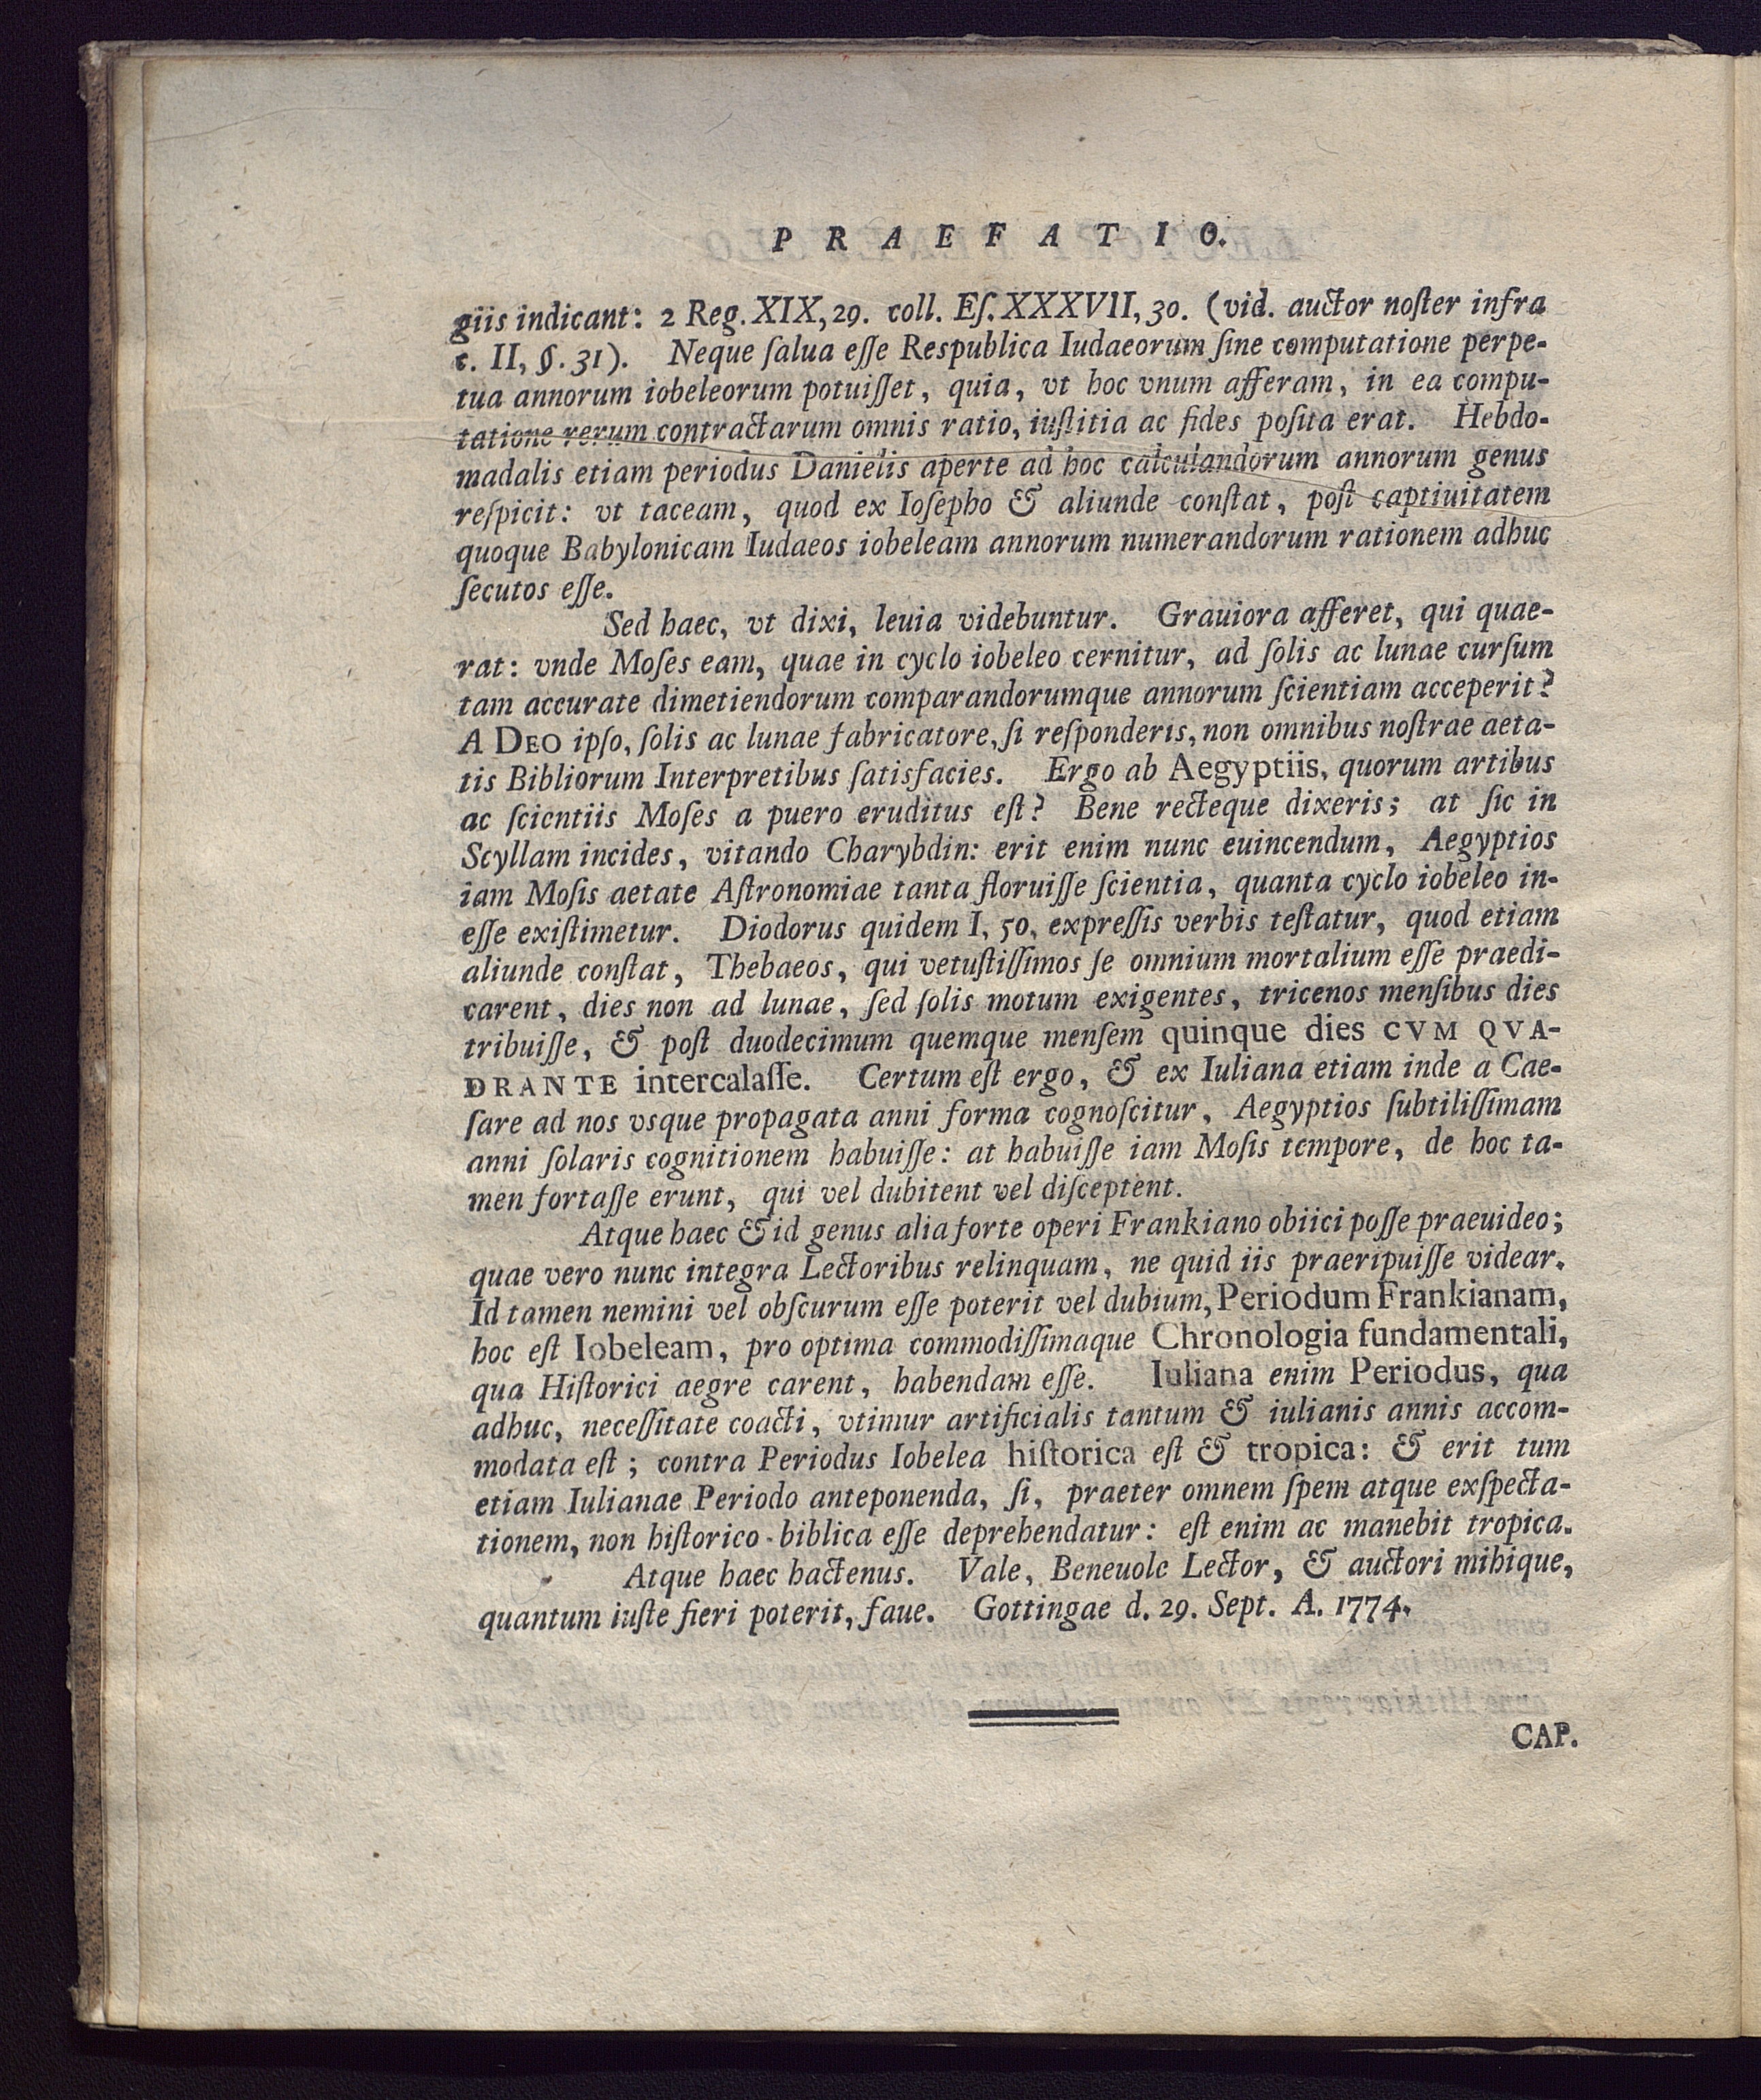 PRAEFATIO.
giis indicant: 2 Reg. XIX, 29. coll. Eſ. XXXVII, 30. (vid. auctor noſter infra
c. II, §. 31). Neque ſalua eſſe Respublica Iudaeorum ſine computatione perpe-
tua annorum iobeleorum potuiſſet, quia, vt hoc vnum afferam, in ea compu-
tatione rerum contractarum omnis ratio, iuſtitia ac fides poſita erat. Hebdo-
madalis etiam periodus Danielis aperte ad hoc calculandorum annorum genus
reſpicit: vt taceam, quod ex Ioſepho & aliunde conſtat, poſt captiuitatem
quoque Babylonicam Iudaeos iobeleam annorum numerandorum rationem adhuc
ſecutos eſſe.
Sed haec, vt dixi, leuia videbuntur. Grauiora afferet, qui quae-
rat: vnde Moſes eam, quae in cyclo iobeleo cernitur, ad ſolis ac lunae curſum
tam accurate dimetiendorum comparandorumque annorum ſcientiam acceperit?
A DEO ipſo, ſolis ac lunae fabricatore, ſi reſponderis, non omnibus noſtrae aeta-
tis Bibliorum Interpretibus ſatisfacies. Ergo ab Aegyptiis, quorum artibus
ac ſcientiis Moſes a puero eruditus eſt? Bene recteque dixeris; at ſic in
Scyllam incides, vitando Charybdin: erit enim nunc euincendum, Aegyptios
iam Moſis aetate Aſtronomiae tanta floruiſſe ſcientia, quanta cyclo iobeleo in-
eſſe exiſtimetur. Diodorus quidem I, 50, expreſſis verbis teſtatur, quod etiam
aliunde conſtat, Thebaeos, qui vetuſtiſſimos ſe omnium mortalium eſſe praedi-
carent, dies non ad lunae, ſed ſolis motum exigentes, tricenos menſibus dies
tribuiſſe, & poſt duodecimum quemque menſem quinque dies CVM QVA-
DRANTE intercalaſſe. Certum eſt ergo, & ex Iuliana etiam inde a Cae-
ſare ad nos vsque propagata anni forma cognoſcitur, Aegyptios ſubtiliſſimam
anni ſolaris cognitionem habuiſſe: at habuiſſe iam Moſis tempore, de hoc ta-
men fortaſſe erunt, qui vel dubitent vel diſceptent.
Atque haec & id genus alia forte operi Frankiano obiici poſſe praeuideo;
quae vero nunc integra Lectoribus relinquam, ne quid iis praeripuiſſe videar.
Id tamen nemini vel obſcurum eſſe poterit vel dubium, Periodum Frankianam,
hoc eſt Iobeleam, pro optima commodiſſimaque Chronologia fundamentali,
qua Hiſtorici aegre carent, habendam eſſe. Iuliana enim Periodus, qua
adhuc, neceſſitate coacti, vtimur artificialis tantum & iulianis annis accom-
modata eſt; contra Periodus Iobelea hiſtorica eſt & tropica: & erit tum
etiam Iulianae Periodo anteponenda, ſi, praeter omnem ſpem atque exſpecta-
tionem, non hiſtorico-biblica eſſe deprehendatur: eſt enim ac manebit tropica.
Atque haec hactenus. Vale, Beneuole Lector, & auctori mihique,
quantum iuſte fieri poterit, faue. Gottingae d. 29. Sept. A. 1774.
CAP.